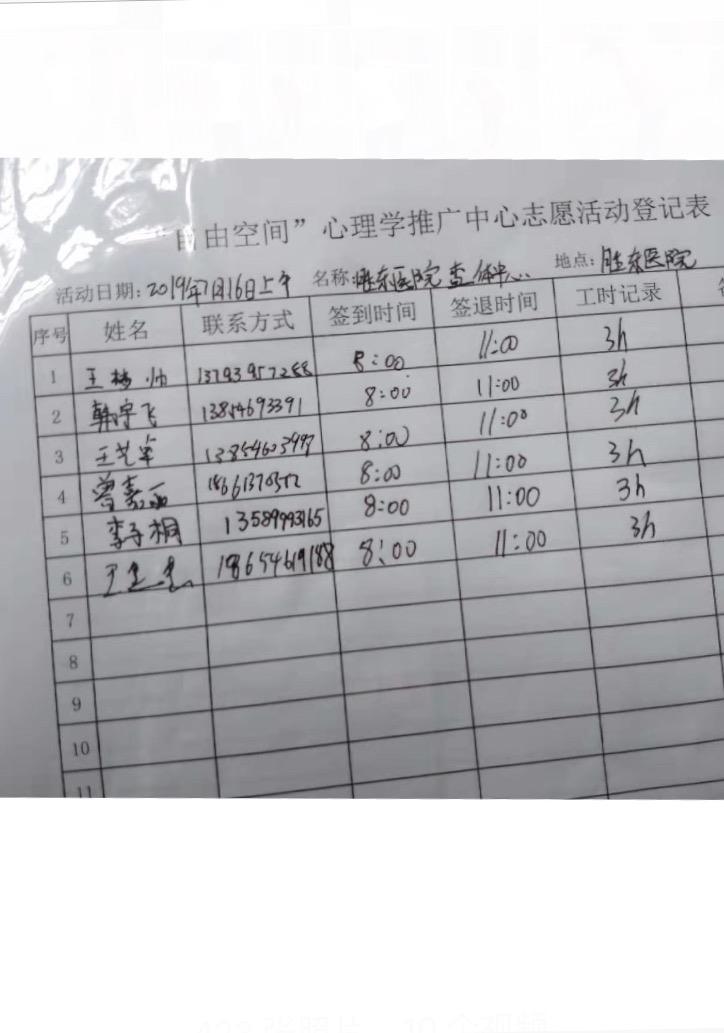 “自由空间”心理学推广中心志愿活动登记表
活动日期:2019年7月16日上午 名称:胜东医院查体中心 地点:胜东医院
序号 姓名 联系方式 签到时间 签退时间 工时记录
1 王 帅 13793957288 8:00 11:00 3h
2 韩宇飞 13854693391 8:00 11:00 3h
3 王艺卓 13854603997 8:00 11:00 3h
4 曾嘉 8:00 11:00 3h
5 李子桐 13589993165 8:00 11:00 3h
6 王 18654619188 8:00 11:00 3h
7
8
9
10
11